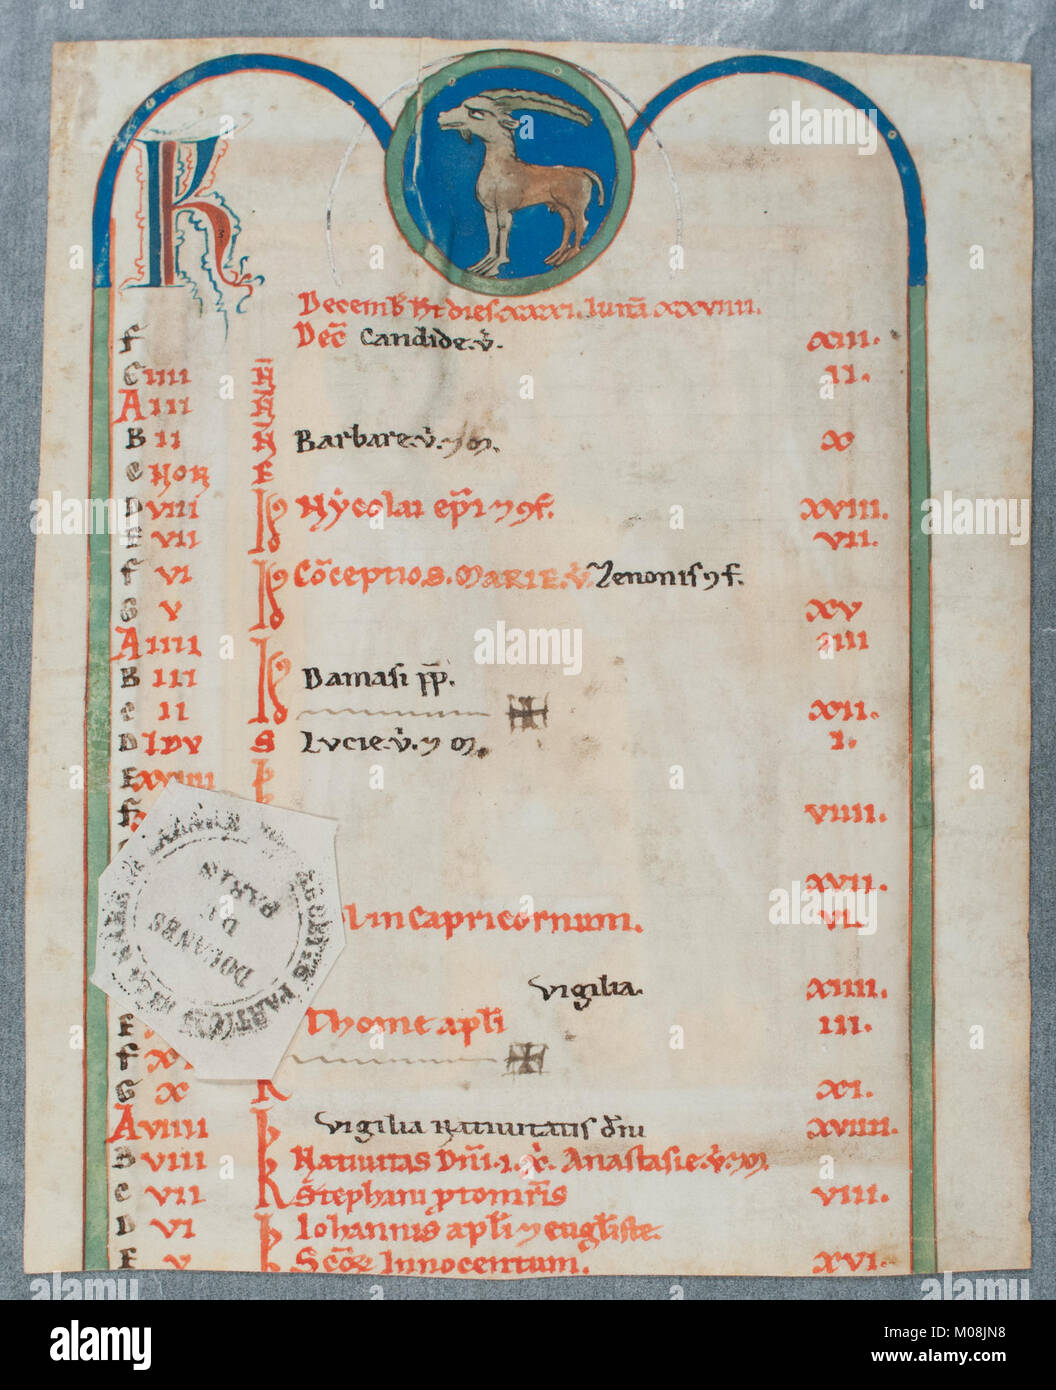 K
Decemb̄ ħt dies.xxxi. lunā xxviiii.
F Dec̄ Candide.v̄. xiii.
C iiii N̄ ii.
A iii N̄
B ii N̄ Barbare.v̄.⁊ m̄. x
C NON E
D viii Nẏcolai ep̄i ⁊ ꝯf. xviii.
E vii vii.
F vi Cōceptio S. MARIE.v̄. Zenonis ꝯf.
G v xv
A iiii iiii
B iii Damasi p̄p̄.
C ii xii.
D IDV S Lvcie.v̄.⁊ m̄. i.
E xviiii
F viiii.
xvii.
Sol in Capricornum. vi.
Vigilia. xiiii.
E Thome apl̄i iii.
F xi
G x K xi.
A viiii Vigilia Natiuitatis dn̄i xviiii.
B viii Natiuitas Dn̄i. Anastasie.v̄.
C vii K Stephani ꝓtom̄ris viii.
D vi Iohannis apl̄i ⁊ eugl̄iste.
E v Scōꝝ Innocentum. xvi.
DOUANES
DE
PARIS
alamy
alamy
Image ID: M08JN8
www.alamy.com